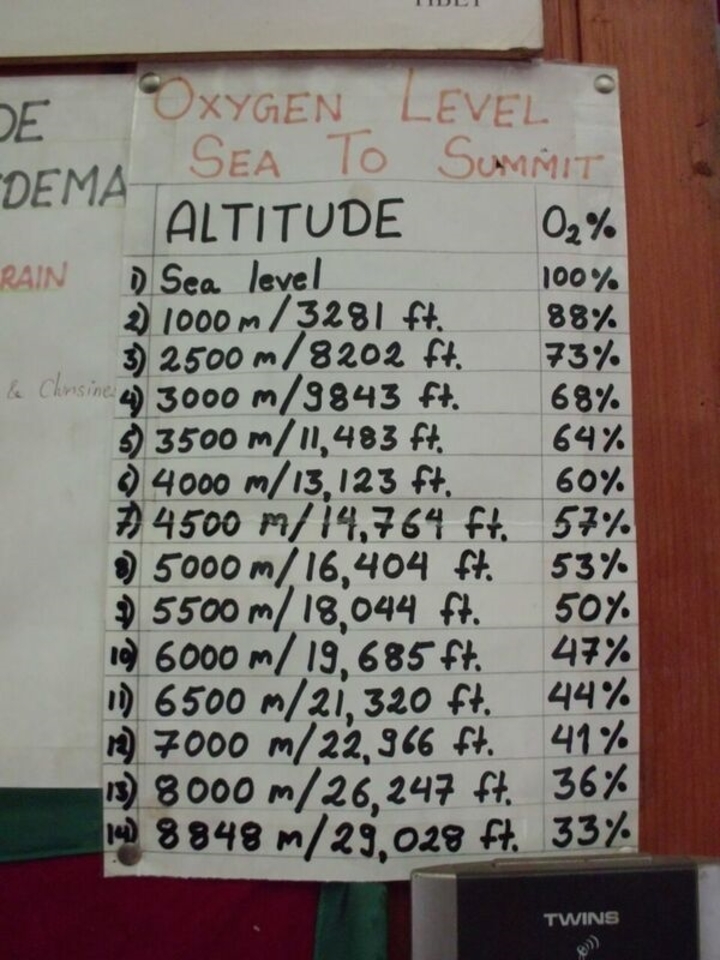 TIBET
DE
DEMA
RAIN
& Chrisine
OXYGEN LEVEL
SEA TO SUMMIT
ALTITUDE O2%
1) Sea level 100%
2) 1000 m/3281 ft. 88%
3) 2500 m/8202 ft. 73%
4) 3000 m/9843 ft. 68%
5) 3500 m/11,483 ft. 64%
6) 4000 m/13,123 ft. 60%
7) 4500 m/14,764 ft. 57%
8) 5000 m/16,404 ft. 53%
9) 5500 m/18,044 ft. 50%
10) 6000 m/19,685 ft. 47%
11) 6500 m/21,320 ft. 44%
12) 7000 m/22,966 ft. 41%
13) 8000 m/26,247 ft. 36%
14) 8848 m/29,028 ft. 33%
TWINS